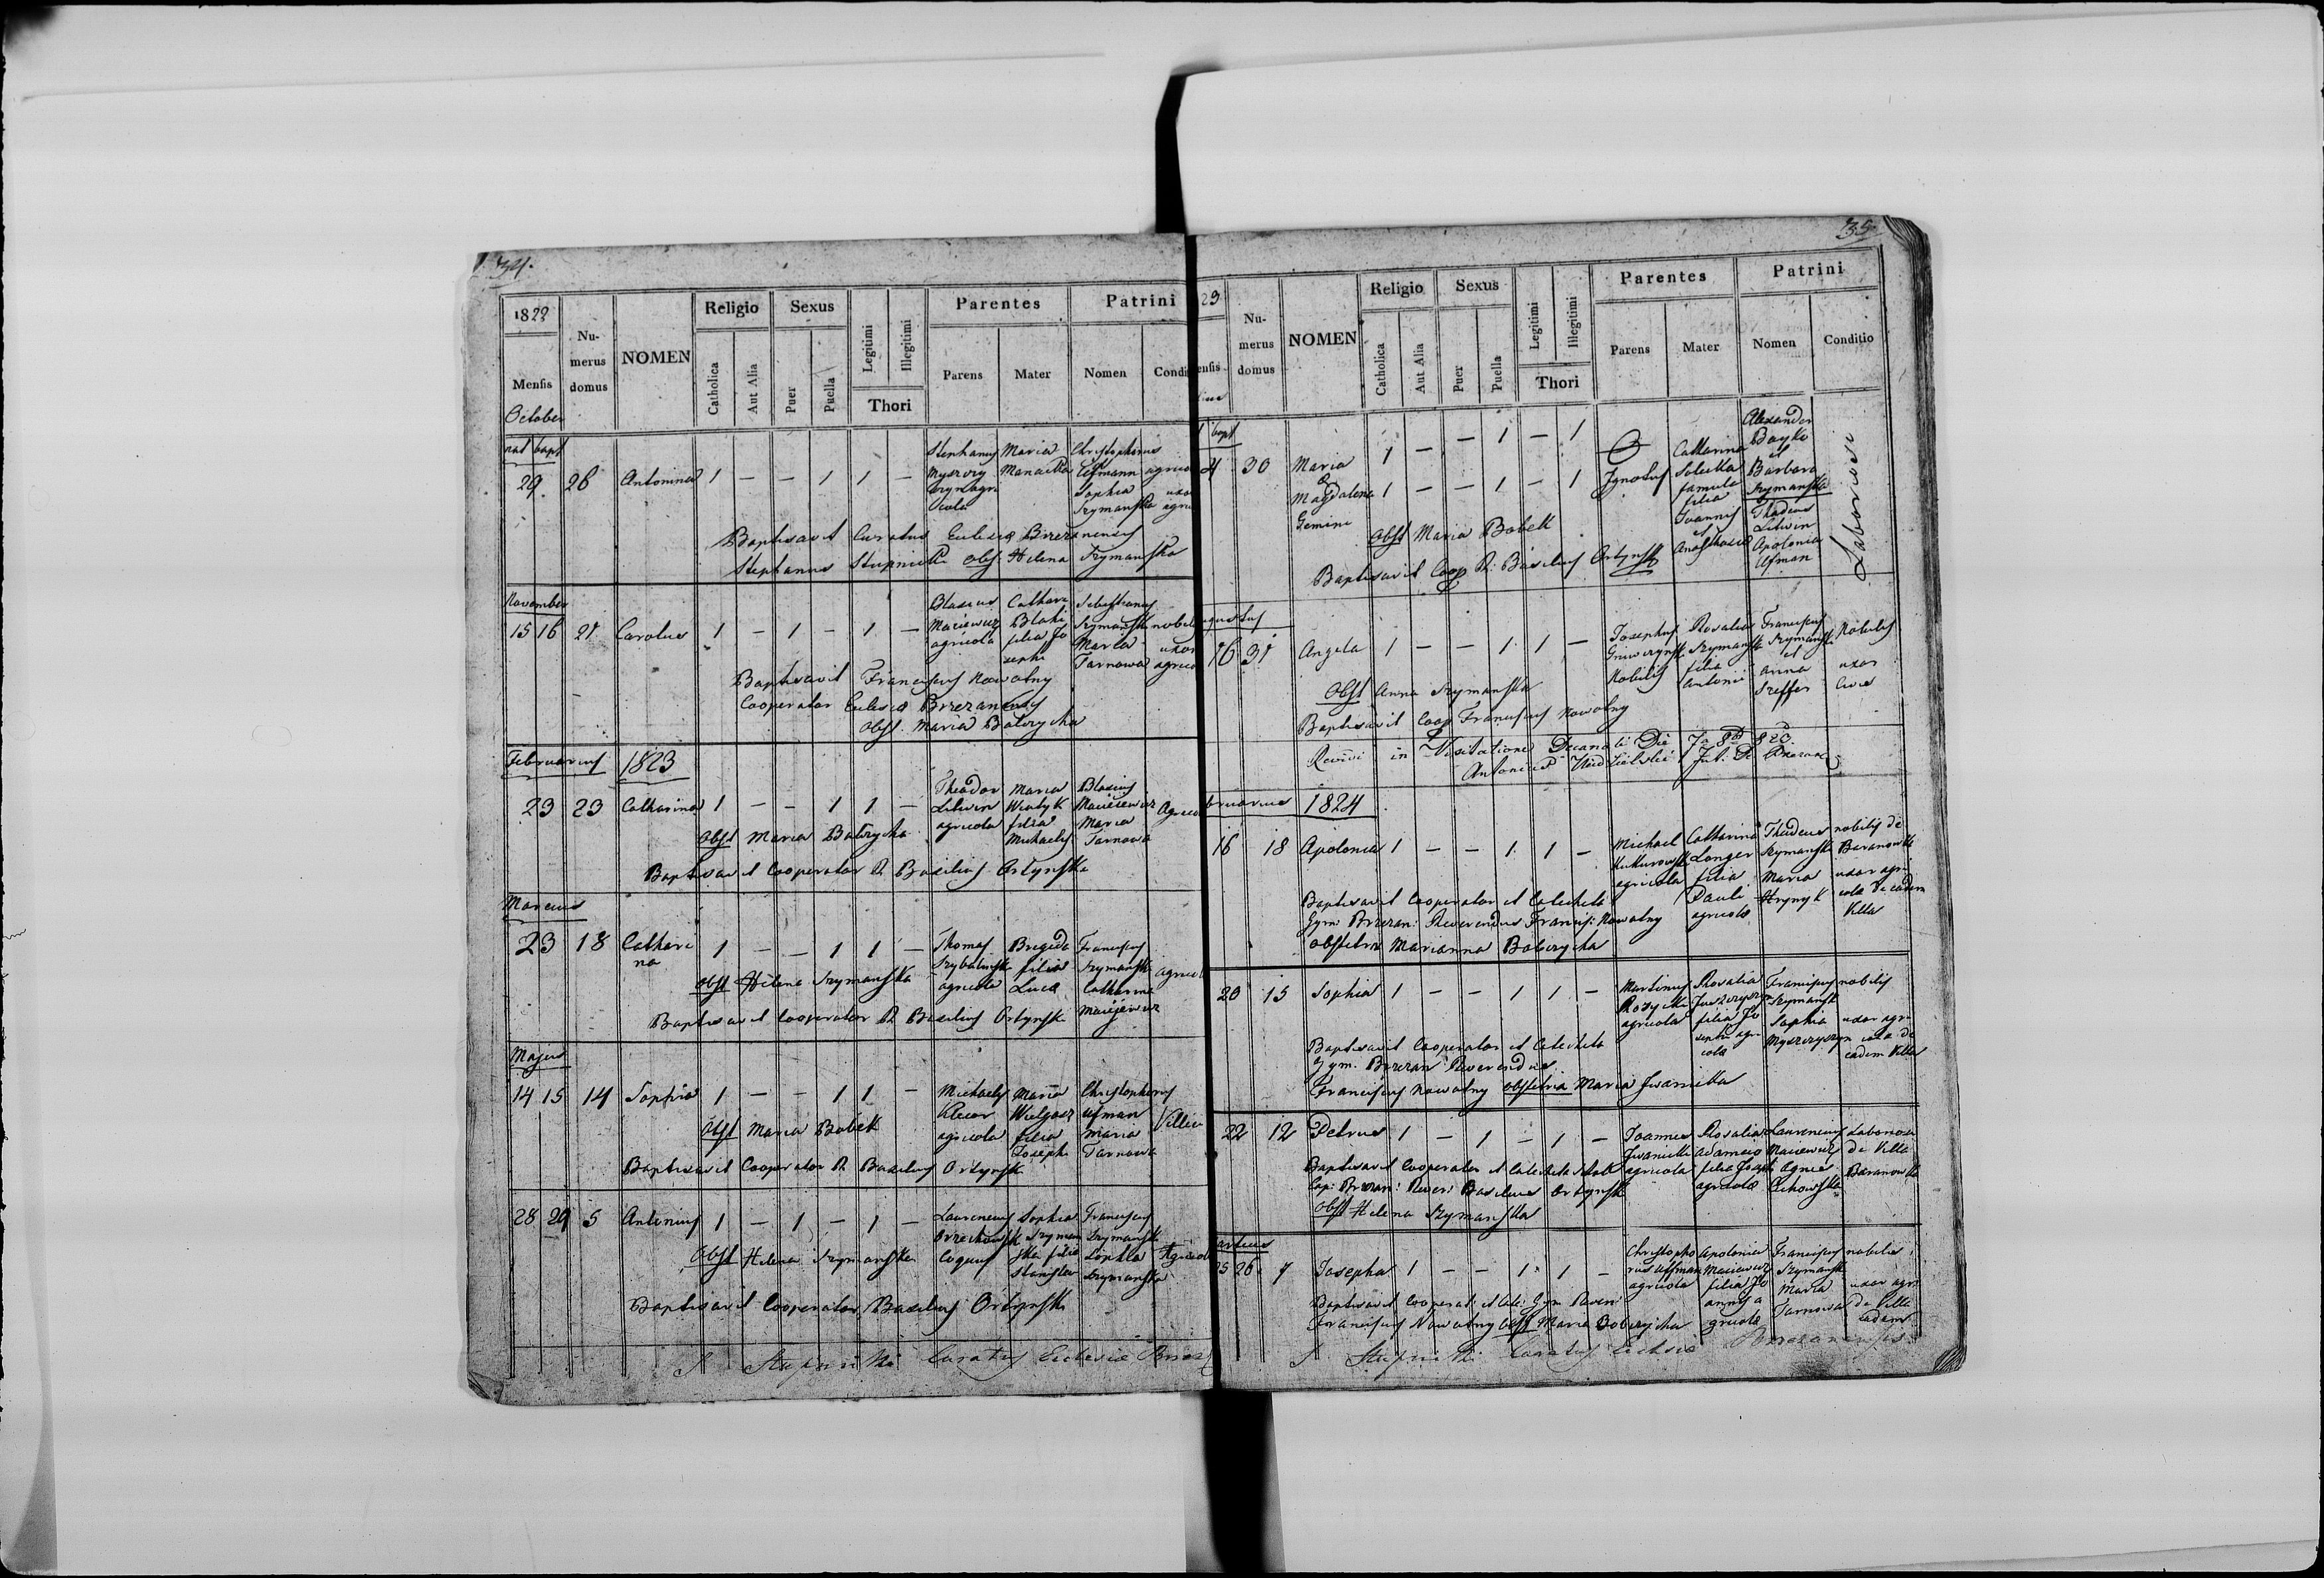 34.
1822
Mensis
October
Numerus domus
NOMEN
Religio
Catholica
Aut Alia
Sexus
Puer
Puella
Legitimi
Illegitimi
Thori
Parentes
Parens
Mater
Patrini
Nomen
Condi
nat bapt
29 26 Antonina 1 — — 1 1 —
Stephanus
agri
cola
Maria
Christophorus
agrico
Sophia uxor
Szymanska agri
Baptisavit Curatus Eclesiæ Brzezanensis
Stephanus Stupnicki Obs. Helena Szymanska
November
15 16 21 Carolus 1 — 1 — 1 —
Blasius
Maciewicz
agricola
Cathari
filia Jo
sephi
Sebastianus
Szymanski nobil
Maria uxor
Tarnowa agrico
Baptisavit Franciscus Nowotny
Cooperator Eclesiæ Brzezanensis
Obst. Maria Bobrycha
Februarius 1823
23 23 Catharina 1 — — 1 1 —
Theodor
Litwin
agricola
Maria
Wiatyk
filia
Michaelis
Blasius
Maciesewicz
Maria
Tarnowa
Agrico
Obst Maria Bobrycha
Baptisavit Cooperator R Basilius Ortynski
Marcius
23 18 Cathari
na 1 — — 1 1 —
Thomas
agricola
Brigida
filia
Luca
Franciscus
Szymanski
Catharina
Maciejewicz
agricol
Obst Helena Szymanska
Baptisavit Cooperator R Basilius Ortynski
Majus
14 15 14 Sophia 1 — — 1 1 —
Michaely
agricola
Maria
Wielgosz
filia
Josephi
Christophorus
Ufman
Maria
Tarnowa
Obst Maria Bobek
Baptisavit Cooperator R Basilius Ortynski
28 29 5 Antonius 1 — 1 — 1 —
Laurencius
Orzechowski
Coquus
Sophia
Szyman
ska filia
Stanislai
Franciscus
Szymanski
Sophia
Szymanska
Agricol
Obst Helena Szymanska
Baptisavit Cooperator Basilius Ortynski
S Stupnicki Curatus Eclesiæ Brzez
35.
23
ensis
Numerus domus
NOMEN
Religio
Catholica
Aut Alia
Sexus
Puer
Puella
Legitimi
Illegitimi
Thori
Parentes
Parens
Mater
Patrini
Nomen
Conditio
bapt
4 30 Maria
&
Magdalena
Gemini
1 — — 1 — 1
1 — — 1 — 1
Ignotus
Catharina
famula
filia
Joannis
et
Anasthasiæ
Alexander
Boyko
et
Barbara
Szymanska
Thadeus
Litwin
Apolonia
Ufman
Laboriosi
Obst Maria Bobek
Baptisavit Coop R. Basilius Ortynski
gustus
16 31 Angela 1 — — 1 1 —
Josephus
Nobilis
Rosalia
Szymanska
filia
Antonii
Franciscus
Szymanski
et
Anna
Szeffer
Nobilis
uxor
Civis
Obst Anna Szymanska
Baptisavit Coop Franciscus Nowotny
in Visitatione Decanali Die 7 8 823
Antonius
bruarius 1824
16 18 Apolonia 1 — — 1 1 —
Michael
Kukurowski
agricola
Catharina
Langer
filia
Pauli
agricolæ
Thadeus
Szymanski
Maria
Hrynyk
nobilis de
Baranowka
uxor agri
colæ de eadem
Villa
Baptisavit Cooperator et Catecheta
Gym: Brzezan: Reverendus Francis: Nowotny
obstetrix Marianna Bobrycha
20 15 Sophia 1 — — 1 1 —
Martinus
Rozycki
agricola
Rosalia
filia Jo
sephi agri
colæ
Franciscus
Szymanski
Sophia
Myszczyszyn
nobilis
uxor agri
cola de
eadem Villa
Baptisavit Cooperator et Catecheta
Gym. Brzezan Reverendus
Franciscus Nowotny obstetrix Maria Iwanicka
22 12 Petrus 1 — 1 — 1 —
Joannes
Iwanicki
agricola
Rosalia
filia Josephi
agricolæ
Laurencius
Maciewicz
Agnes
Cichowska
Laboriosi
de Villa
Baranowka
Baptisavit Cooperator et Catecheta
Cap: Brzezan: Rever: Basilius Ortynski
Obst Helena Szymanska
artius
25 26 7 Josepha 1 — — 1 1 —
Christopho
rus Uffman
agricola
Apolonia
Maciewicz
filia Jo
annis a
gricolæ
Franciscus
Szymanski
Maria
Tarnowa
nobilis
uxor agri
de Villa
eadem
Baptisavit Cooperat: et Cate: Gym Reveren
Franciscus Nowotny Obst Maria Bobrycha
S Stupnicki Curatus Eclesiæ Brzezanensis